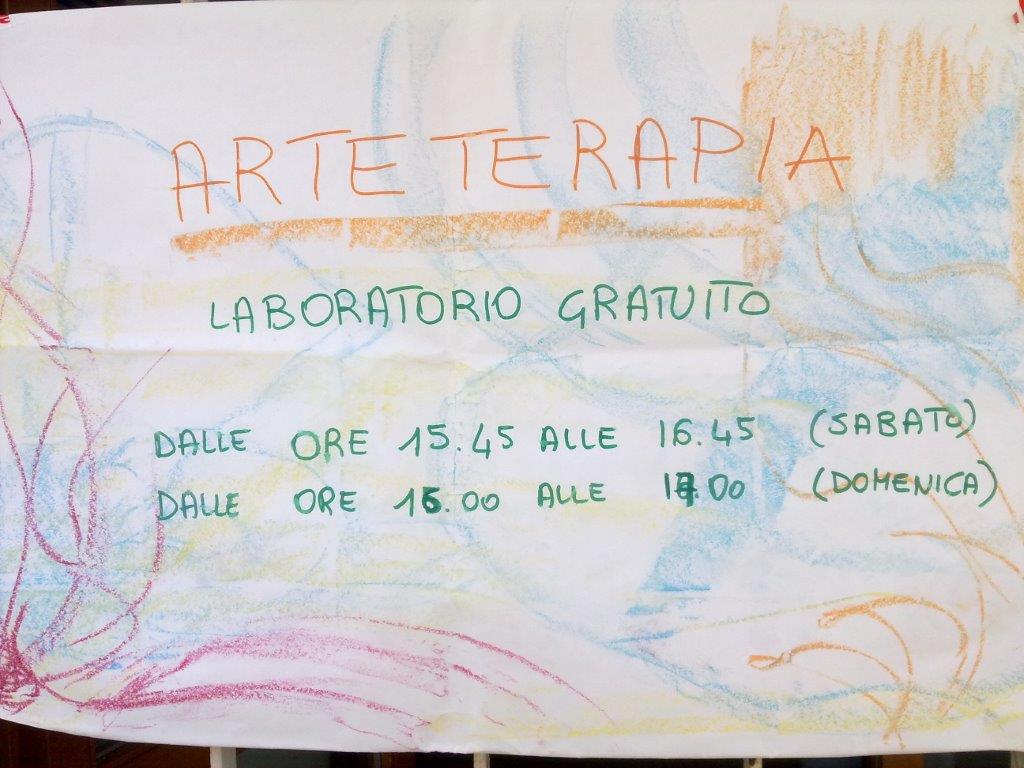 ARTETERAPIA
LABORATORIO GRATUITO
DALLE ORE 15.45 ALLE 16.45 (SABATO)
DALLE ORE 16.00 ALLE 17.00 (DOMENICA)